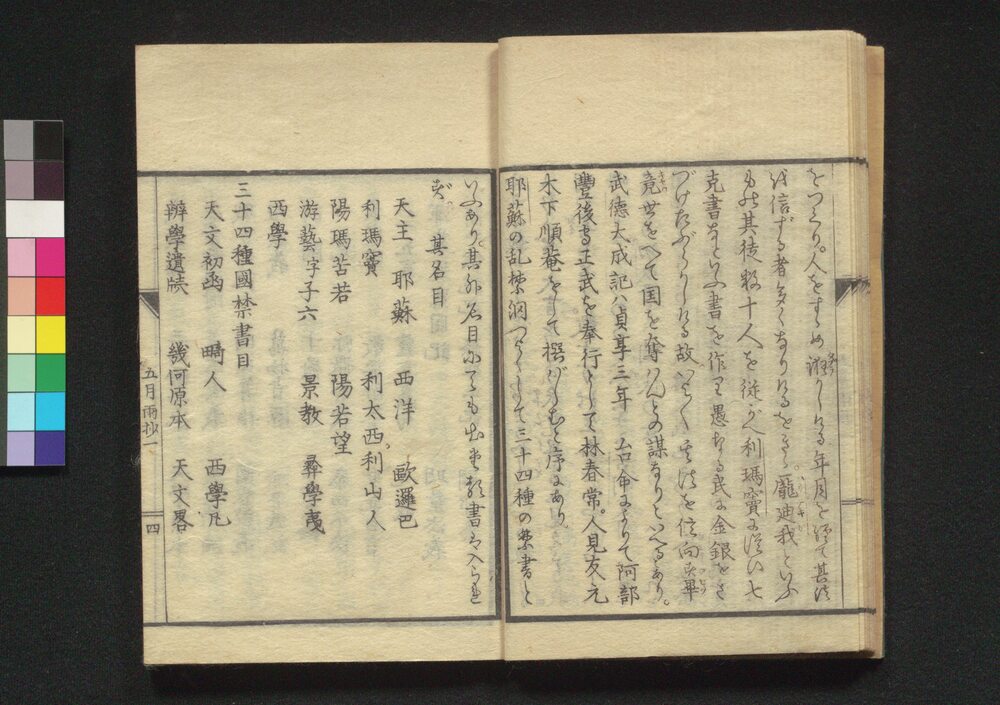 をつくり。人をすゝめ誑かしける年月を經て其法
を信ずる者多くなりけるをきゝ。龐廸我といふ
もの其徒數十人を從がへ利瑪竇に從ひ七
克書などいふ書を作り愚なる民に金銀をさ
づけたぶらかしける故いよ〳〵其法を信向し畢
竟世をへて国を奪はんとの謀なりといへるあり。
武徳大成記ハ貞享三年 台命によりて阿部
豐後守正武を奉行として林春常。人見友元
木下順菴をして撰ばしむと序にあり
耶蘇の乱禁網つよくして三十四種の禁書と
いふあり。其外名目にても出たる書は入られ
ず。 其名目
天主 耶蘇 西洋 歐邏巴
利瑪竇 利太西利山人
陽瑪苦若 陽若望
游藝字子六 景教 彜學夷
西學
三十四種國禁書目
天文初函 畸人 西學凡
辨學遺牘 幾何原本 天文畧
五月雨抄一 四